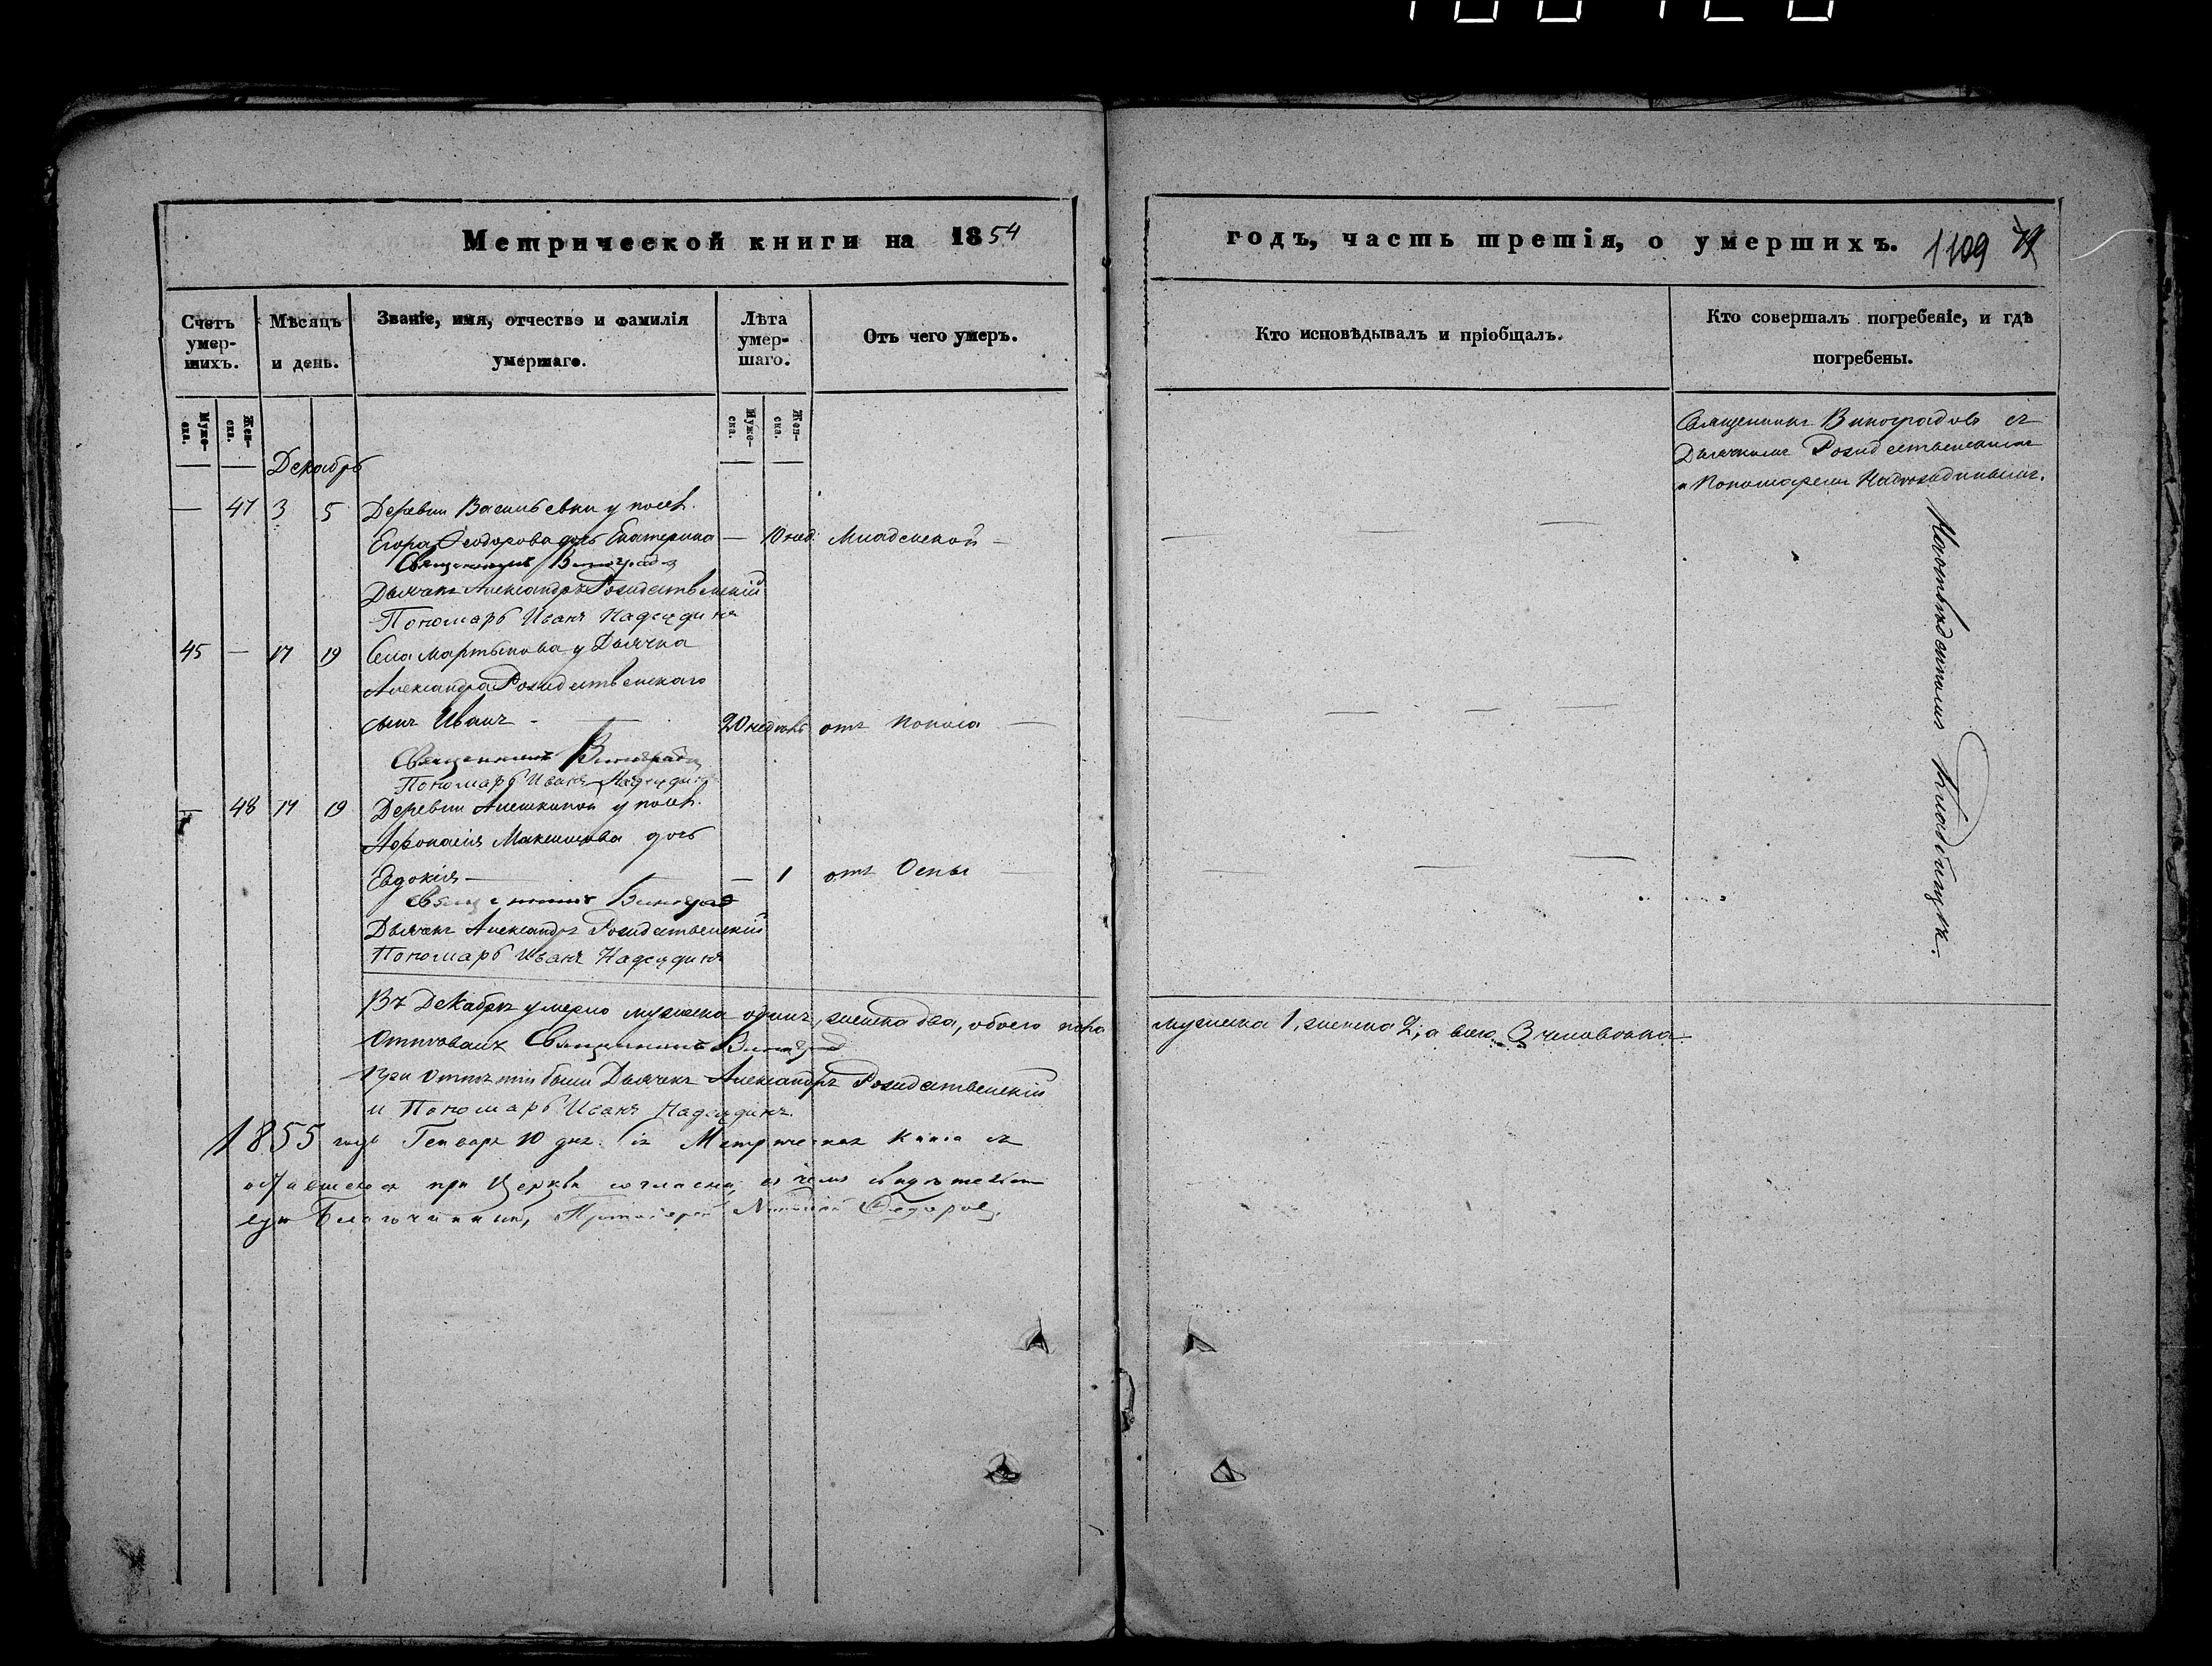 Метрической книги на 1854
годъ, часть третія, о умершихъ. 1109
Счетъ умер-шихъ.
Мѣсяцъ и день.
Званіе, имя, отчество и фамилія умершаго.
Лѣта умер-шаго.
Отъ чего умеръ.
Кто исповѣдывалъ и пріобщалъ.
Кто совершалъ погребеніе, и гдѣ погребены.
Муже-ска.
Жен-ска.
Муже-ска.
Жен-ска.
Декабрь
— 47 3 5 Деревни Васильевки у посел.
Егора Ѳеодорова дочь Екатерина — 10 нед. Младенской —
Священникъ Виноградов
Дьячекъ Александръ Рождественскій
Пономарь Иванъ Надеждинъ
45 — 17 19 Села Мартынова у Дьячка
Александра Рождественскаго
сынъ Иванъ — 20 недѣль отъ поноса —
Священникъ Виноградов
Пономарь Иванъ Надеждинъ
— 48 17 19 Деревни Алешкиной у посел.
Афонасія Максимова дочь
Евдокія — — 1 отъ Оспы —
Священникъ Виноградов
Дьячекъ Александръ Рождественскій
Пономарь Иванъ Надеждинъ
Въ Декабрѣ умерло мужеска одинъ, женска два, обоего пола
Отпѣвалъ Священникъ Виноградов
При отпѣтіи были Дьячекъ Александръ Рождественскій
и Пономарь Иванъ Надеждинъ.
1855 года Генваря 10 дня. Сія Метрическая книга съ
оставшеюся при Церкви согласна, въ чемъ свидѣтельствую
Благочинный, Протоіерей Федоров
Священникъ Виноградовъ съ
Дьячкомъ Рождественскимъ
и Пономаремъ Надеждинымъ.
на Приходскомъ Кладбищѣ.
мужеска 1, женска 2, а всего 3 человѣка